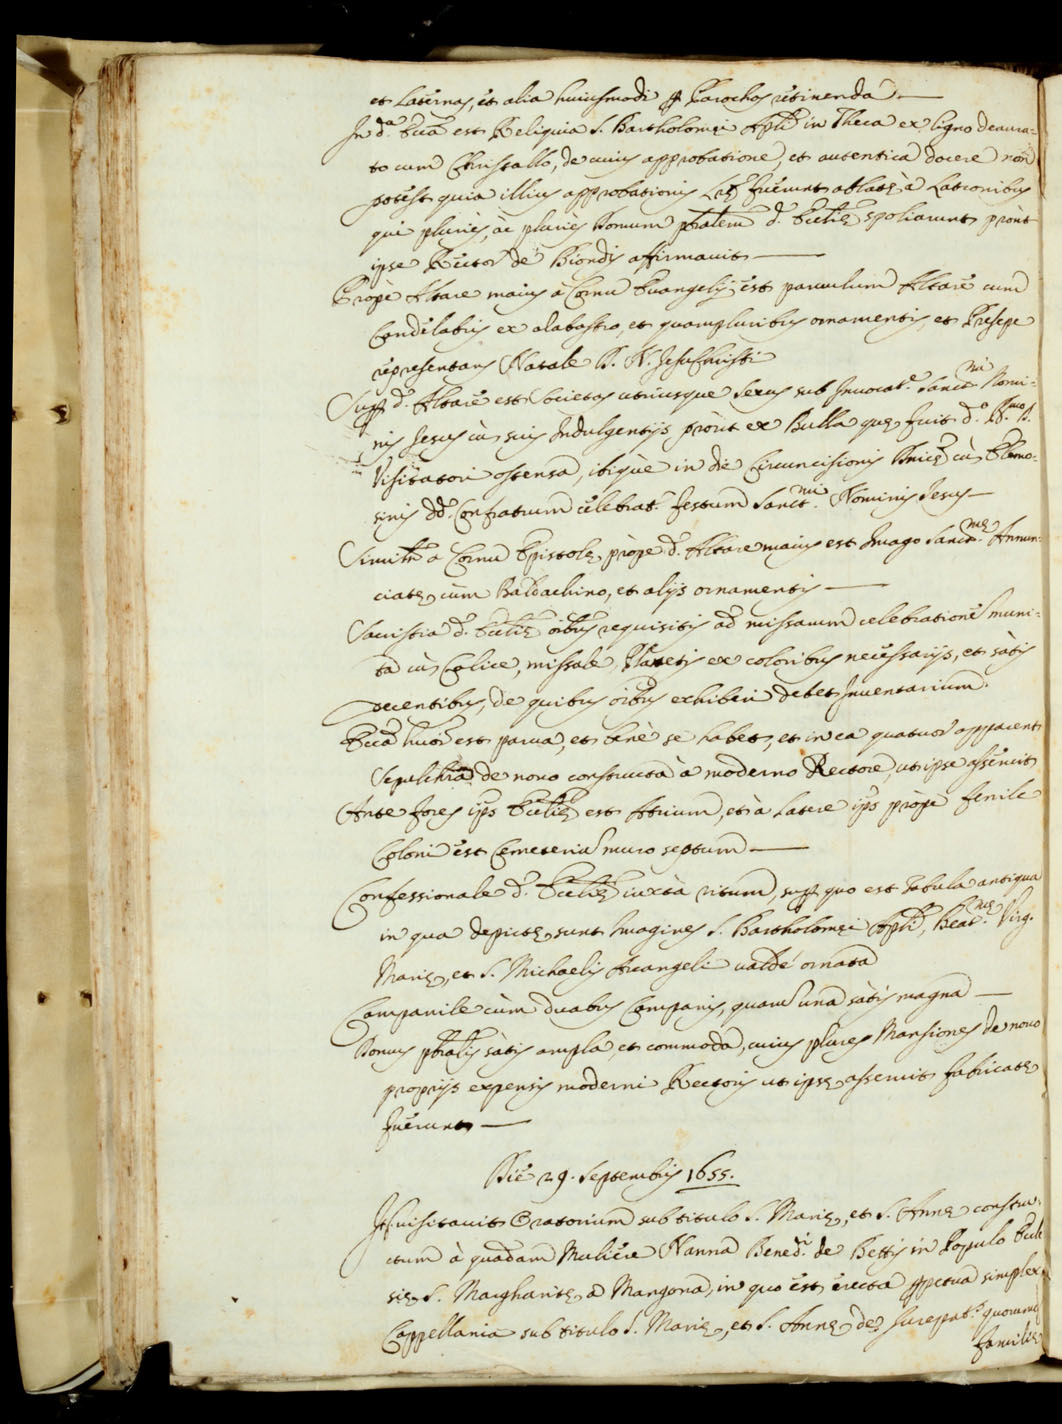 et Laternas, et alia huiusmodi p Parochos retinenda —
In d.ª Eccã est Reliquia S. Bartholomęi Apli in Theca ex ligno deaura-
to cum Christallo, de cuius approbatione, et autentica docere non
potest quia illius approbationis Lrę fuerunt ablatę à Latronibus
qui pluriès, ac pluriès Domum pbralem d. Ecclię spoliarunt, proùt
ipse Rector de Biondis affirmauit —
Propè Altare maius à Cornu Euangelij est paruulum Altare cum
Candelabris ex alabastro, et quampluribus ornamentis, et Presepe
representans Natale D. N. Jesu Christi
Supp d. Altare est Societas utriusque sexus sub Inuocat.e Sanct.mi Nomi-
nis Jesus cù suis Indulgentijs, proùt ex Bulla quę fuit d.º R.mo D.
Visitatori ostensa, ibiquè in die Circuncisionis Dnicę cù Elemo-
sinis dd. Confratrum celebrat.r festum Sanct.mi Nominis Jesus —
Similr à Cornu Epistolę propè d. Altare maius est Imago Sanct.mę Annun-
ciatę cùm Baldachino, et alijs ornamentis —
Sacristia d. Ecclię oibus requisitis ad missarum celebrationè muni-
ta cù Calice, missale, Planetis ex coloribus necessarijs, et satis
decentibus, de quibus oibus exhiberi debet Inuentarium.
Eccã huiõi est parua, et benè se habet, et in ea quatuor apparent
Sepulchra de nouo constructa à moderno Rectore, ut ipse asseruit
Ante fores ips Ecclię est Atrium, et à latere ips propè fenile
Coloni est Cemeteriu muro septum —
Confessionale d. Ecclię iuxtà ritum, supp quo est tabula antiqua
in qua depictę sunt Imagines S. Bartholomęi Apli, Beat.mę Virg.
Marię, et S. Michaelis Arcangeli ualdè ornata
Campanile cùm duabus Campanis, quarù una satis magna —
Domus pbralis satis ampla, et commoda, cuius plures Mansiones de nouo
proprijs expensis moderni Rectoris ut ipse asseruit fabricatę
fuerunt —
Die 29. Septembris 1655.
It. uisitauit Oratorium sub titulo S. Marię, et S. Annę constru-
ctum à quadam Muliere Nanna Bened.i de Bettis in Populo Eccle
się S. Margharitę a Mangona, in quo est erecta ppetua simplex
Cappellania sub titulo S. Marię, et S. Annę de Iurepat.s quorum
familię